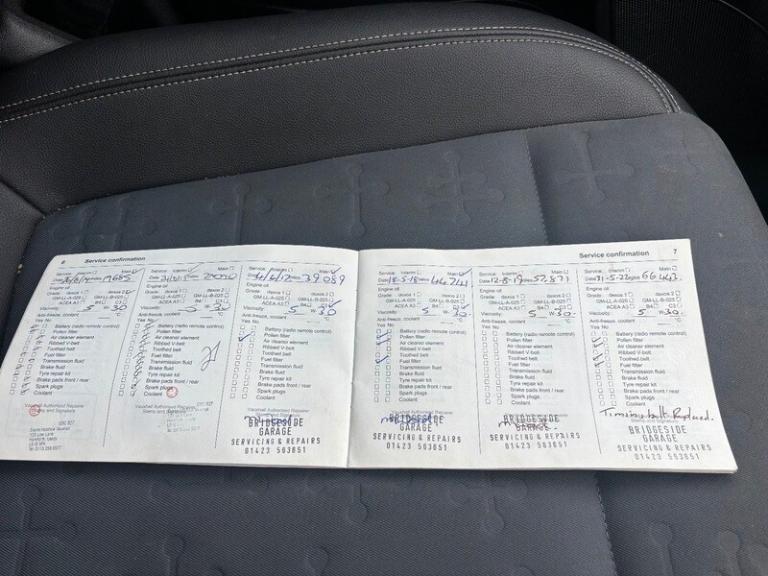 6 Service confirmation
Service Interim Main
Date miles 19685
Engine oil
Grade dexos 1 dexos 2
GM-LL-A-025 GM-LL-B-025
ACEA A3 B4 C3
Viscosity 5 W- 30
Anti-freeze, coolant °C
Yes No
Battery (radio remote control)
Pollen filter
Air cleaner element
Ribbed V-belt
Toothed belt
Fuel filter
Transmission fluid
Brake fluid
Tyre repair kit
Brake pads front / rear
Spark plugs
Coolant
Vauxhall Authorised Repairer
Stamp and Signature
Service Interim Main
Date
Engine oil
Grade dexos 1 dexos 2
GM-LL-A-025 GM-LL-B-025
ACEA A3 B4 C3
Viscosity 5 W- 30
Anti-freeze, coolant °C
Yes No
Battery (radio remote control)
Pollen filter
Air cleaner element
Ribbed V-belt
Toothed belt
Fuel filter
Transmission fluid
Brake fluid
Tyre repair kit
Brake pads front / rear
Spark plugs
Coolant
Vauxhall Authorised Repairer
Stamp and Signature
Service Interim Main
Date 14/6/17 miles 39089
Engine oil
Grade dexos 1 dexos 2
GM-LL-A-025 GM-LL-B-025
ACEA A3 B4 C3
Viscosity 5 W- 30
Anti-freeze, coolant °C
Yes No
Battery (radio remote control)
Pollen filter
Air cleaner element
Ribbed V-belt
Toothed belt
Fuel filter
Transmission fluid
Brake fluid
Tyre repair kit
Brake pads front / rear
Spark plugs
Coolant
Vauxhall Authorised Repairer
BRIDGESIDE
GARAGE
SERVICING & REPAIRS
01423 563851
Service confirmation 7
Service Interim Main
Date 18-5-18 miles
Engine oil
Grade dexos 1 dexos 2
GM-LL-A-025 GM-LL-B-025
ACEA A3 B4 C3
Viscosity 5 W- 30
Anti-freeze, coolant °C
Yes No
Battery (radio remote control)
Pollen filter
Air cleaner element
Ribbed V-belt
Toothed belt
Fuel filter
Transmission fluid
Brake fluid
Tyre repair kit
Brake pads front / rear
Spark plugs
Coolant
BRIDGESIDE
GARAGE
SERVICING & REPAIRS
01423 563851
Service Interim Main
Date 12-8-19 miles 52,871
Engine oil
Grade dexos 1 dexos 2
GM-LL-A-025 GM-LL-B-025
ACEA A3 B4 C3
Viscosity 5 W- 30
Anti-freeze, coolant °C
Yes No
Battery (radio remote control)
Pollen filter
Air cleaner element
Ribbed V-belt
Toothed belt
Fuel filter
Transmission fluid
Brake fluid
Tyre repair kit
Brake pads front / rear
Spark plugs
Coolant
BRIDGESIDE
GARAGE
SERVICING & REPAIRS
01423 563851
Service Interim Main
Date 31-5-22 miles 66443
Engine oil
Grade dexos 1 dexos 2
GM-LL-A-025 GM-LL-B-025
ACEA A3 B4 C3
Viscosity 5 W- 30
Anti-freeze, coolant °C
Yes No
Battery (radio remote control)
Pollen filter
Air cleaner element
Ribbed V-belt
Toothed belt
Fuel filter
Transmission fluid
Brake fluid
Tyre repair kit
Brake pads front / rear
Spark plugs
Coolant
Timing belt
BRIDGESIDE
GARAGE
SERVICING & REPAIRS
01423 563851